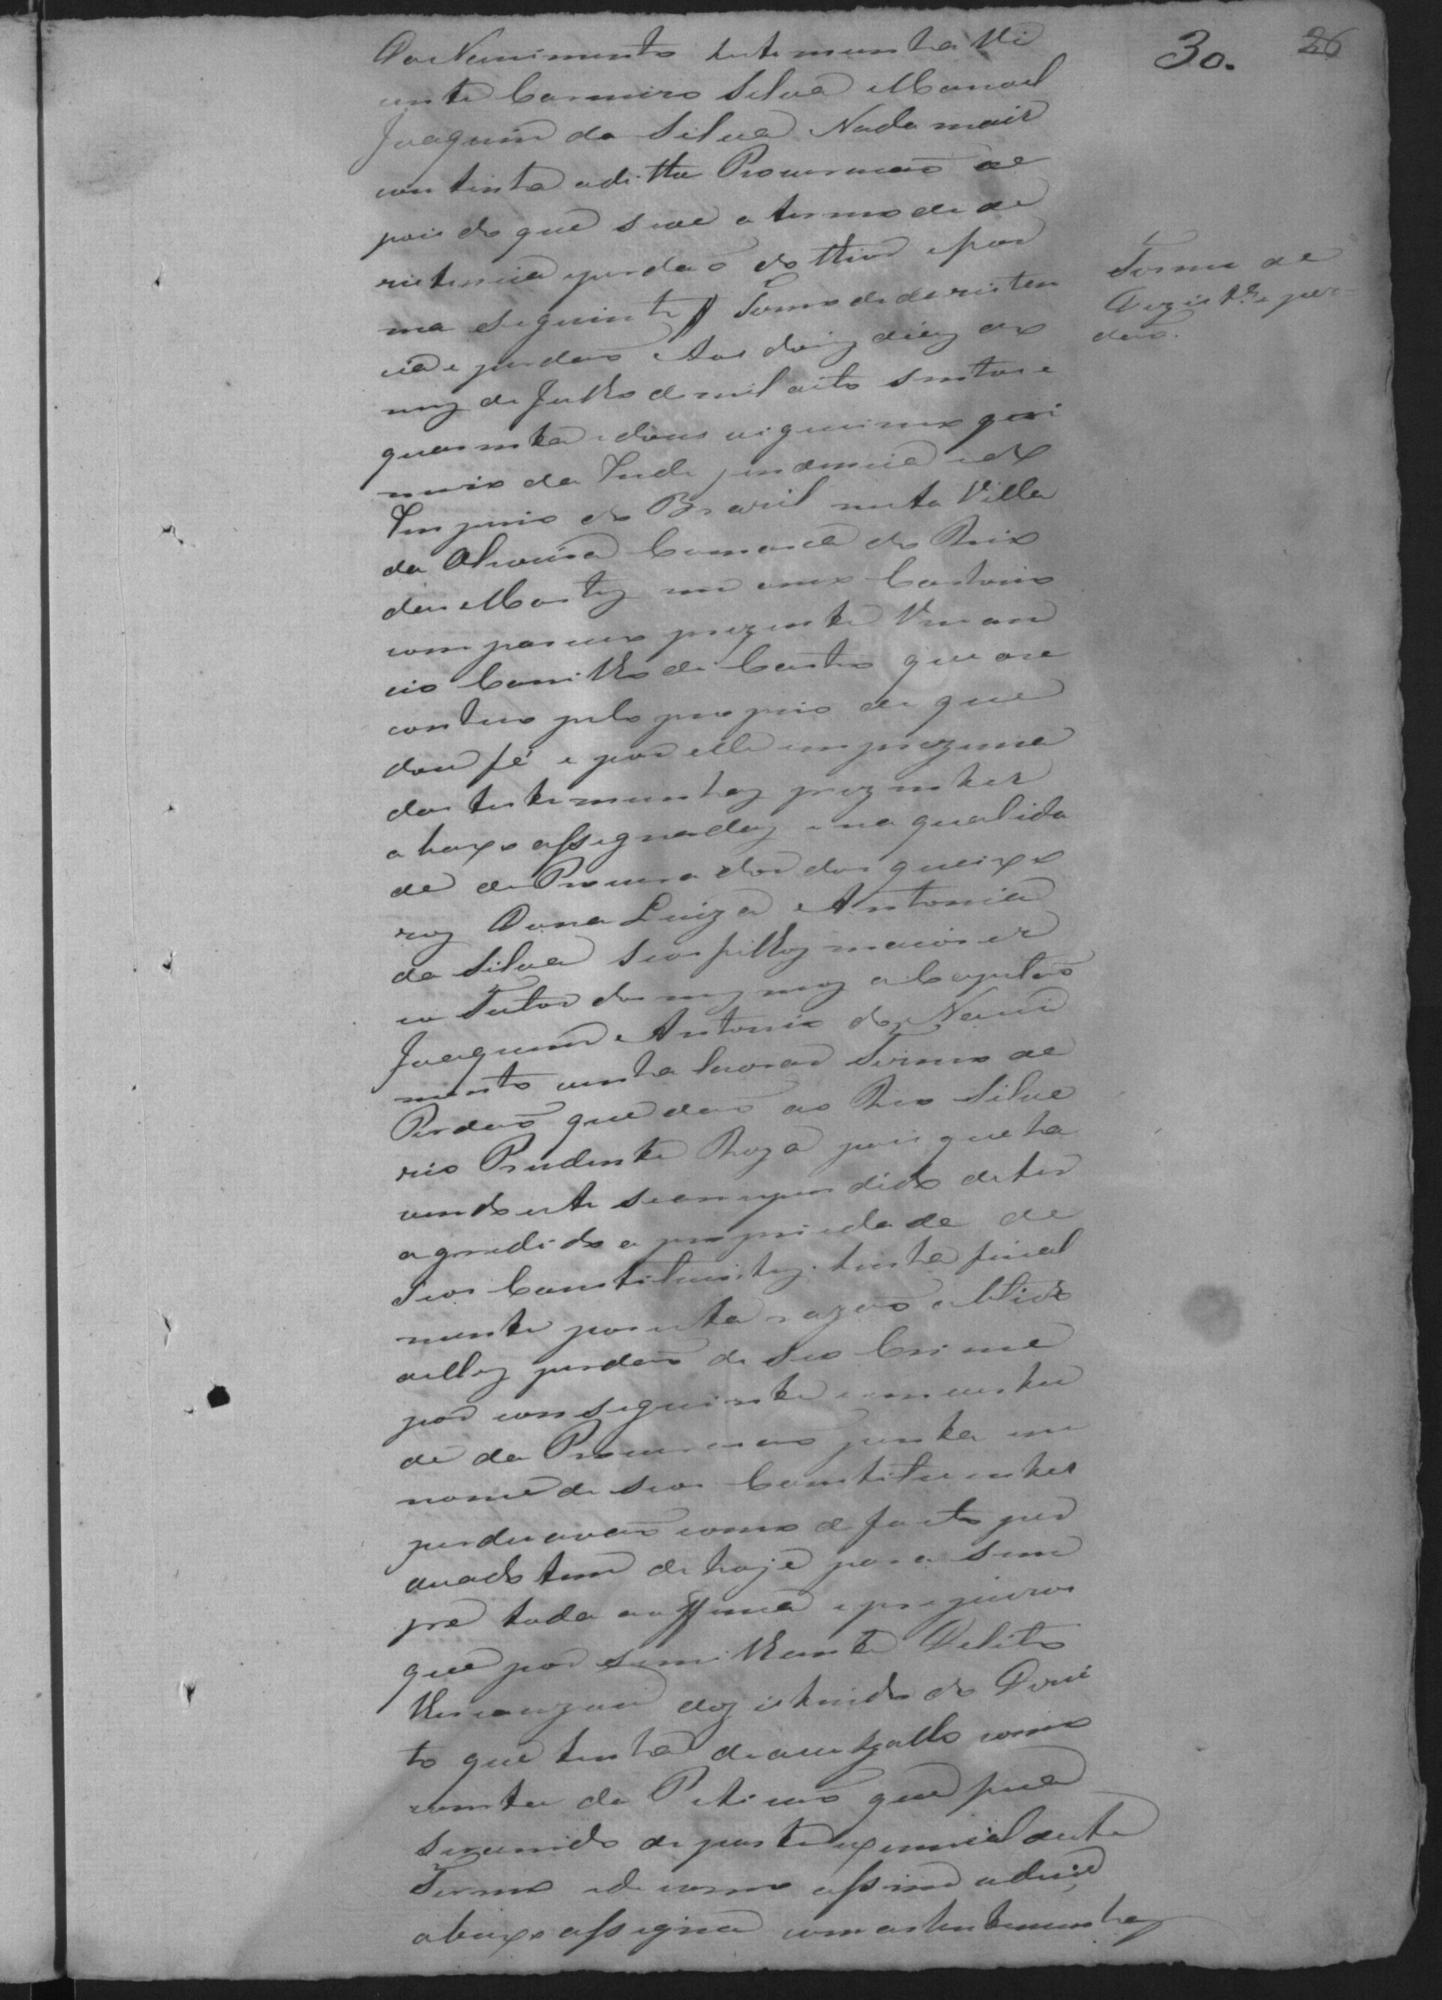 30.
26
do Nascimento testemunha Vi
cente Carneiro Silva Manoel
Joaquim da Silva Nada mais
continha a ditta Procuracaõ de
pois do que se ve o termo de de
zistencia e perdaõ do thior e for
ma seguinte Termo de dezisten
cia e perdaõ Aos doiz diaz do
mez de Julho de mil oito sentos e
quarenta e dous vigecimo pri
meiro da Independencia e do
Imperio do Brazil nesta Villa
da Comarca do Rio
das Mortez em meo Cartorio
compareceo prezente Venan
cio Camillo de Castro que o re
conheco pelo proprio de que
dou fé e por elle em prezenca
das testemunhaz prezentes
abaxo assignadaz e na qualida
de de Procurador dos queixo
zoz Dona Luiza Antonia
da Silva seos filhoz maiores
eo Tutor dos menores o Capitaõ
Joaquim Antonio do Nasci
mento vinha lavrar Termo de
Perdaõ que daõ ao Reo Silve
rio Prudente Roza pois que ha
vendo este se arrependido de ter
agredido a propriedade de
seos Constituintez. tinha final
mente por esta razaõ obtido
delles perdaõ de seo Crime
por conseguinte em virtu
de da Procuracaõ junta em
nome de seos Constituintes
perduavaõ como de facto per
duado tem de hoje para sem
pre toda a offença e prejuizos
que por semilhante Delito
lhes cauzou dezistindo do Direi
to que tinha de acuzallo como
consta da Peticaõ que fica
servindo de parte excencial deste
Termo e de como assim o dice
abaixo assigna com as testemunhaz
Termo de
Dezistª e per-
daõ.